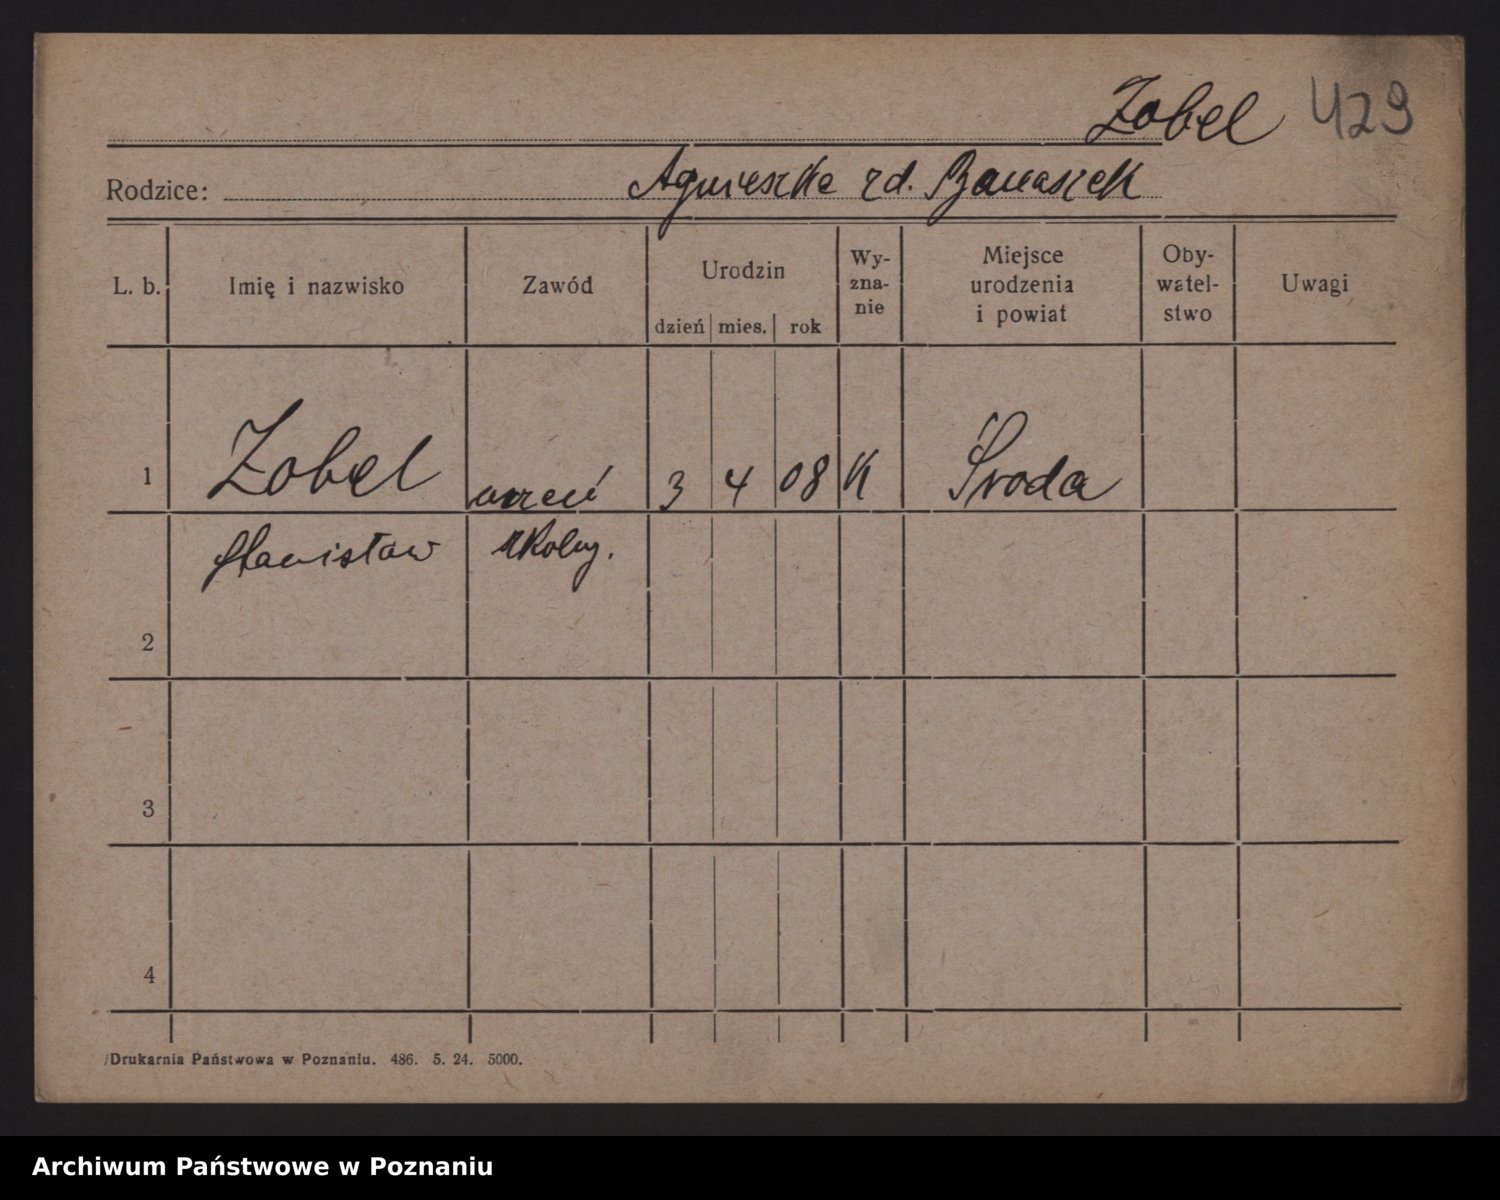 Zobel 429
Rodzice: Agnieszka rd. Banaszek
L. b. Imię i nazwisko Zawód Urodzin dzień mies. rok Wy-zna-nie Miejsce urodzenia i powiat Oby-watel-stwo Uwagi
1 Zobel uczeń 3 4 08 K Środa
Stanisław szkolny.
2
3
4
Drukarnia Państwowa w Poznaniu. 486. 5. 24. 5000.
Archiwum Państwowe w Poznaniu